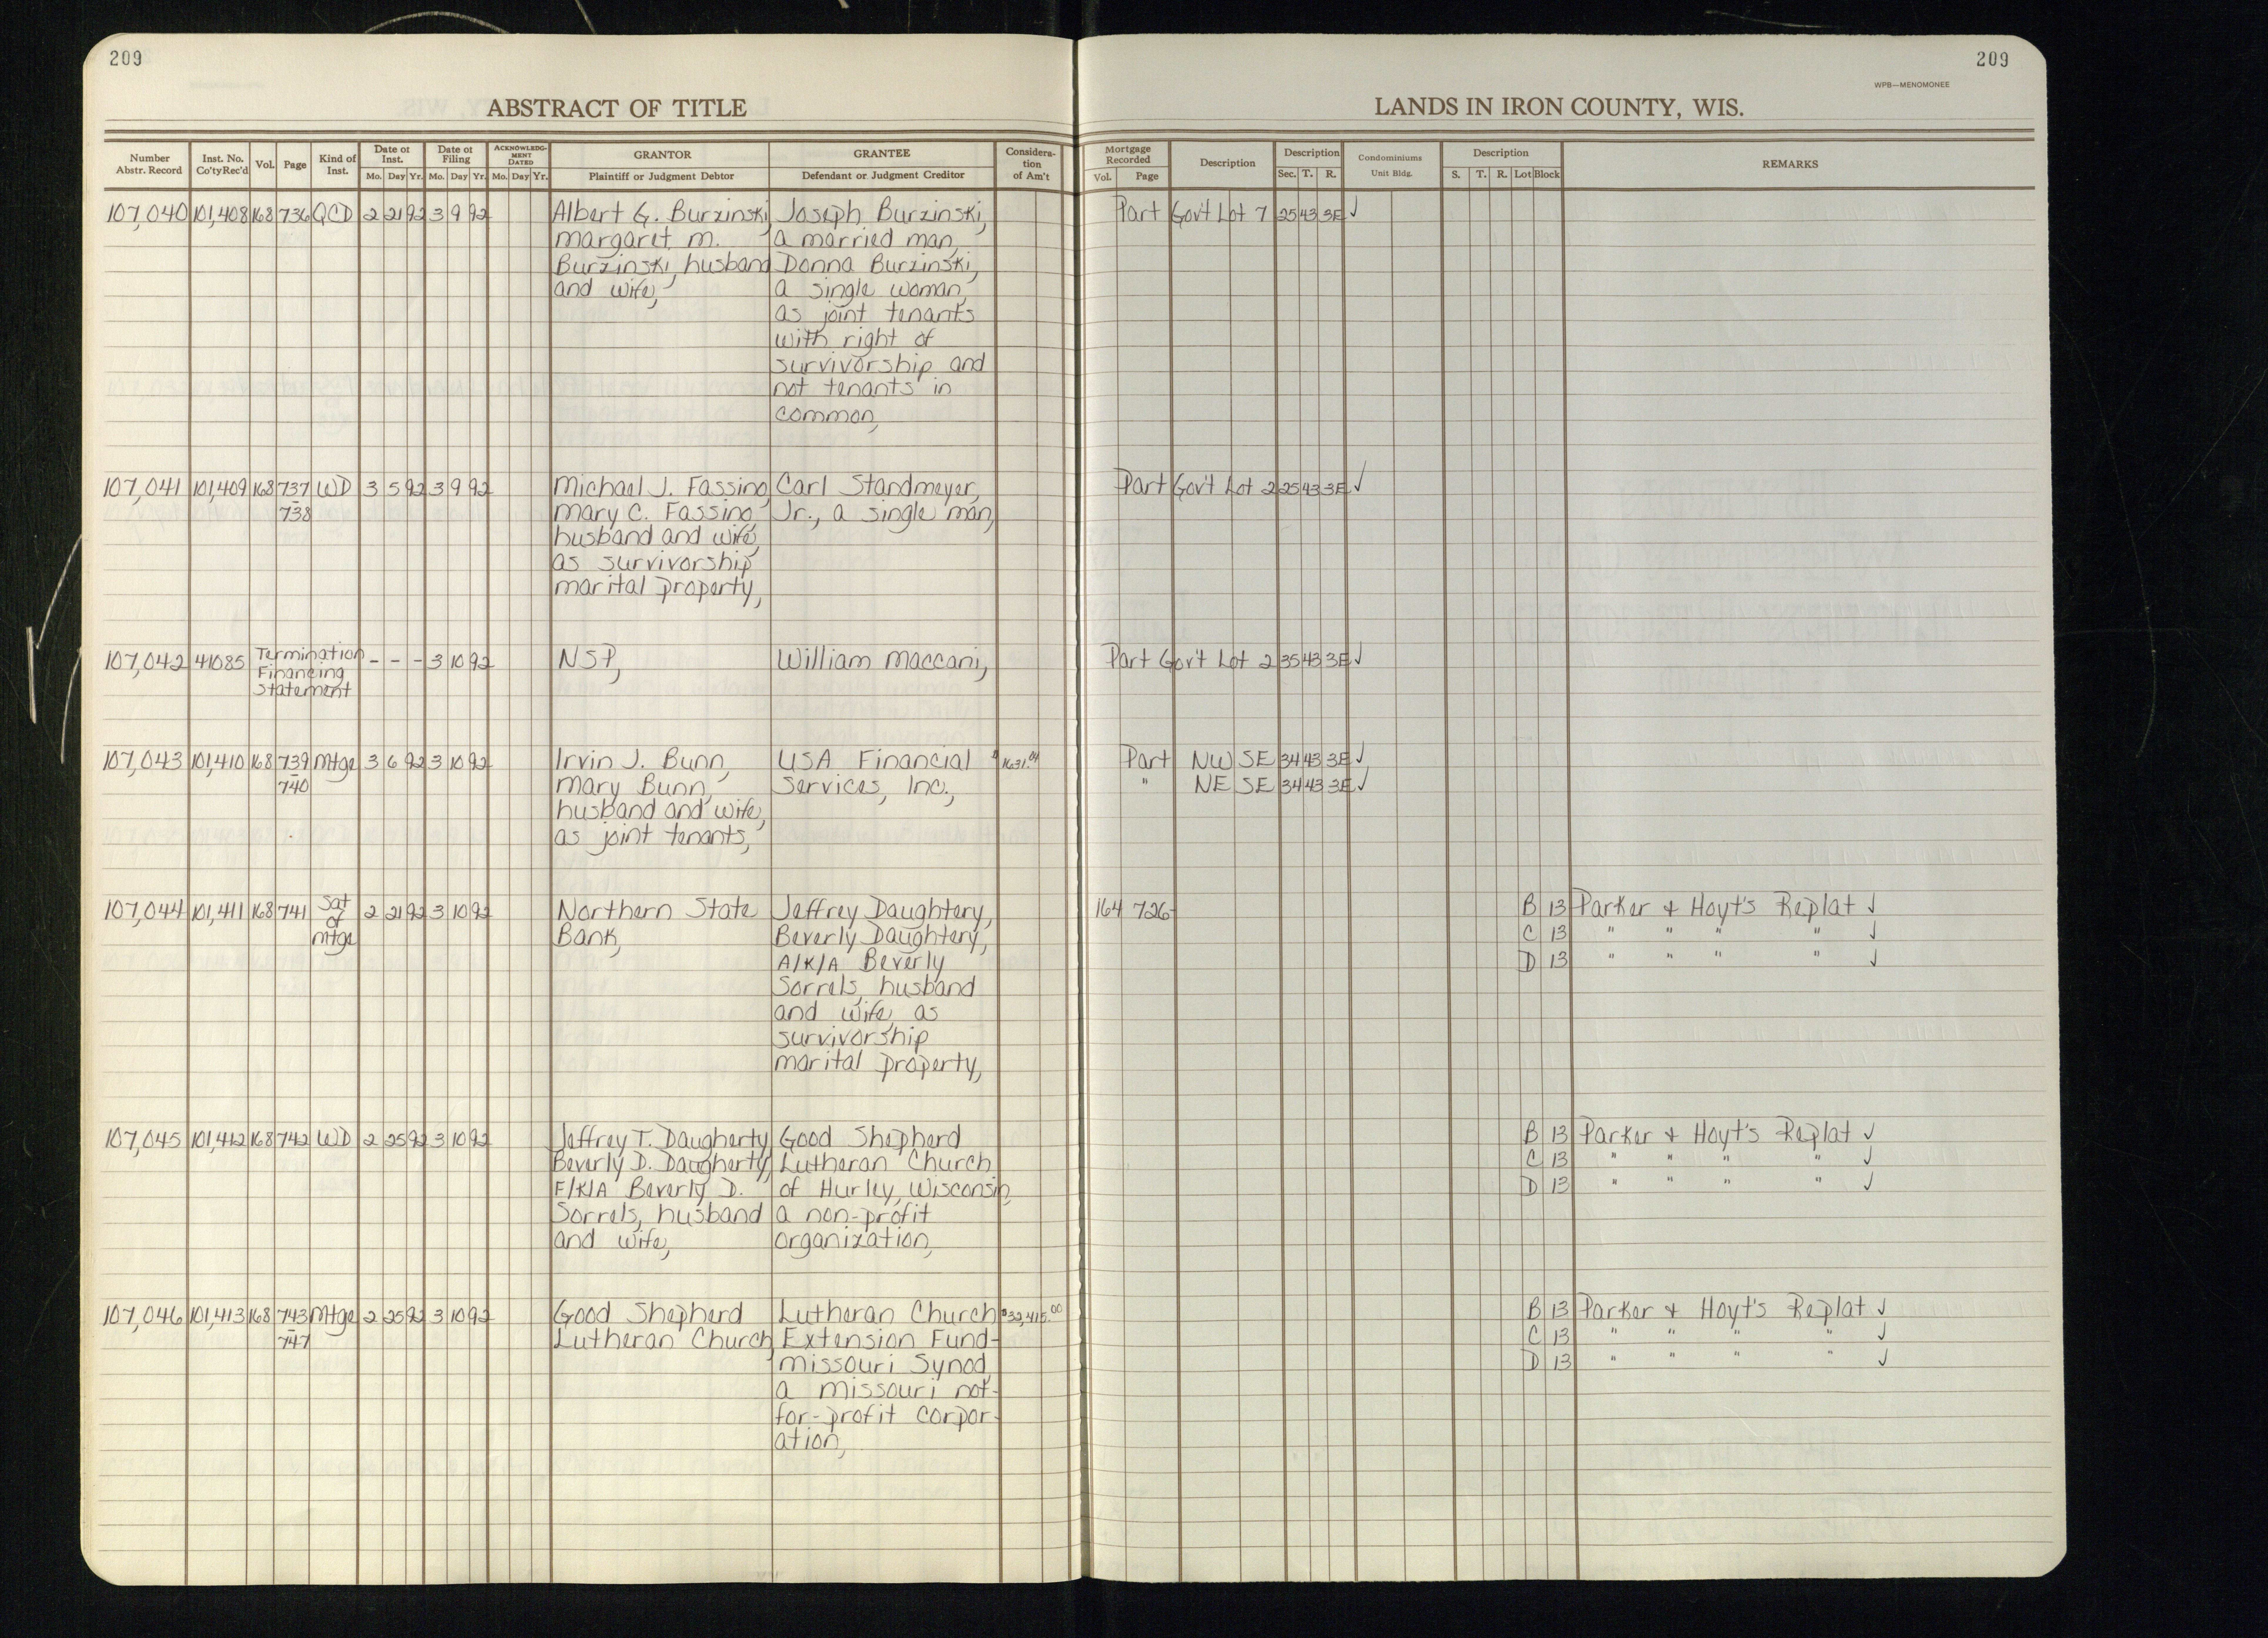 209
209
WPB—MENOMONEE
ABSTRACT OF TITLE
LANDS IN IRON COUNTY, WIS.
Number Abstr. Record Inst. No. Co'ty Rec'd Vol. Page Kind of Inst. Date of Inst. Mo. Day Yr. Date of Filing Mo. Day Yr. ACKNOWLEDG-MENT DATED Mo. Day Yr. GRANTOR Plaintiff or Judgment Debtor GRANTEE Defendant or Judgment Creditor Considera-tion of Am't Mortgage Recorded Vol. Page Description Description Sec. T. R. Condominiums Unit Bldg. Description S. T. R. Lot Block REMARKS
107,040 101,408 168 736 QCD 2 21 92 3 9 92 Albert G. Burzinski, Joseph Burzinski, Part Gov't Lot 7 25 43 3E ✓
Margaret M. a married man,
Burzinski, husband Donna Burzinski,
and wife, a single woman,
as joint tenants
with right of
survivorship and
not tenants in
common,
107,041 101,409 168 737 WD 3 5 92 3 9 92 Michael J. Fassino, Carl Standmeyer, Part Gov't Lot 2 25 43 3E ✓
- 738 Mary C. Fassino, Jr., a single man,
husband and wife,
as survivorship
marital property,
107,042 41085 Termination - - - 3 10 92 NSP, William Maccani, Part Gov't Lot 2 35 43 3E ✓
Financing
Statement
107,043 101,410 168 739 Mtge 3 6 92 3 10 92 Irvin J. Bunn, USA Financial $1631.04 Part NW SE 34 43 3E ✓
- 740 Mary Bunn, Services, Inc., " NE SE 34 43 3E ✓
husband and wife,
as joint tenants,
107,044 101,411 168 741 Sat 2 21 92 3 10 92 Northern State Jeffrey Daughtery, 164 726- B 13 Parker & Hoyt's Replat ✓
of
Mtge Bank, Beverly Daughtery, C 13 " " " " ✓
A/K/A Beverly D 13 " " " " ✓
Sorrels, husband
and wife, as
survivorship
marital property,
107,045 101,412 168 742 WD 2 25 92 3 10 92 Jeffrey T. Daugherty, Good Shepherd B 13 Parker & Hoyt's Replat ✓
Beverly D. Daugherty, Lutheran Church C 13 " " " " ✓
F/K/A Beverly D. of Hurley, Wisconsin, D 13 " " " " ✓
Sorrels, husband a non-profit
and wife, organization,
107,046 101,413 168 743 Mtge 2 25 92 3 10 92 Good Shepherd Lutheran Church $32,415.00 B 13 Parker & Hoyt's Replat ✓
- 747 Lutheran Church, Extension Fund- C 13 " " " " ✓
Missouri Synod, D 13 " " " " ✓
a Missouri not-
for-profit corpor-
ation,